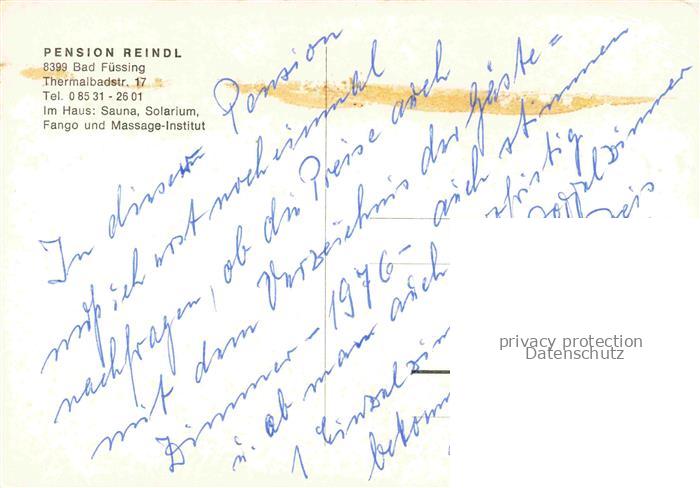 PENSION REINDL
8399 Bad Füssing
Thermalbadstr. 17
Tel. 0 85 31 - 26 01
Im Haus: Sauna, Solarium,
Fango und Massage-Institut
In dieser Pension
muß ich erst noch einmal
nachfragen, ob die Preise auch
mit dem Verzeichnis der Gäste=
Zimmer - 1976 - auch stimmen
u. ob man auch
1 Einzelzim
bekomm
privacy protection
Datenschutz